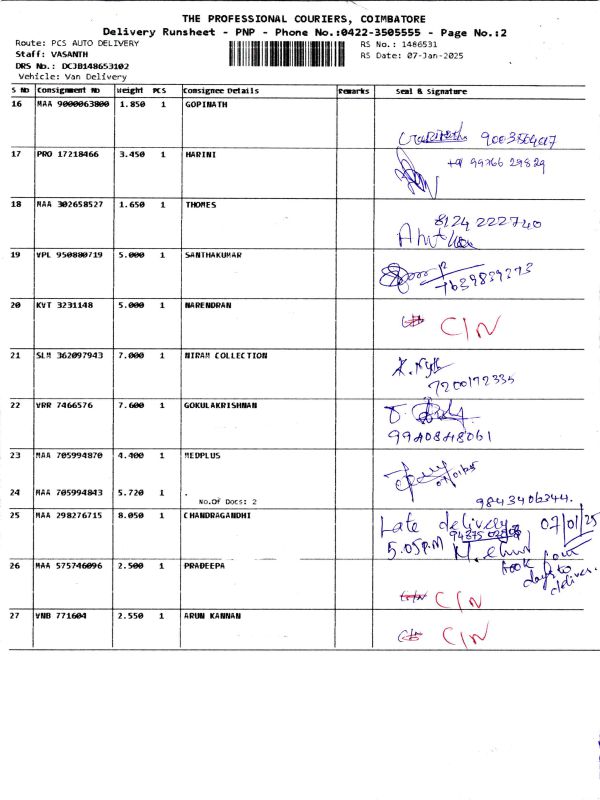 THE PROFESSIONAL COURIERS, COIMBATORE
Delivery Runsheet - PNP - Phone No.:0422-3505555 - Page No.:2
Route: PCS AUTO DELIVERY
RS No.: 1486531
Staff: VASANTH
RS Date: 07-Jan-2025
DRS No.: DCJB148653102
Vehicle: Van Delivery
S No Consignment No Weight PCS Consignee Details Remarks Seal & Signature
16 MAA 9000063800 1.850 1 GOPINATH
17 PRO 17218466 3.450 1 HARINI
+91 99766 29829
18 MAA 302658527 1.650 1 THOMES
8124 222740
19 VPL 950880719 5.000 1 SANTHAKUMAR
7639839273
20 KVT 3231148 5.000 1 NARENDRAN
C/N
21 SLM 362097943 7.000 1 NIRAM COLLECTION
7200172335
22 VRR 7466576 7.600 1 GOKULAKRISHNAN
9940848061
23 MAA 705994870 4.400 1 MEDPLUS
07/01/25
24 MAA 705994843 5.720 1 .
No.Of Docs: 2
9843406344.
25 MAA 298276715 8.050 1 CHANDRAGANDHI
Late delivery 07/01/25
5.05P.M
took four
days to
deliver.
26 MAA 575746096 2.500 1 PRADEEPA
C/N
27 VNB 771604 2.550 1 ARUN KANNAN
C/N